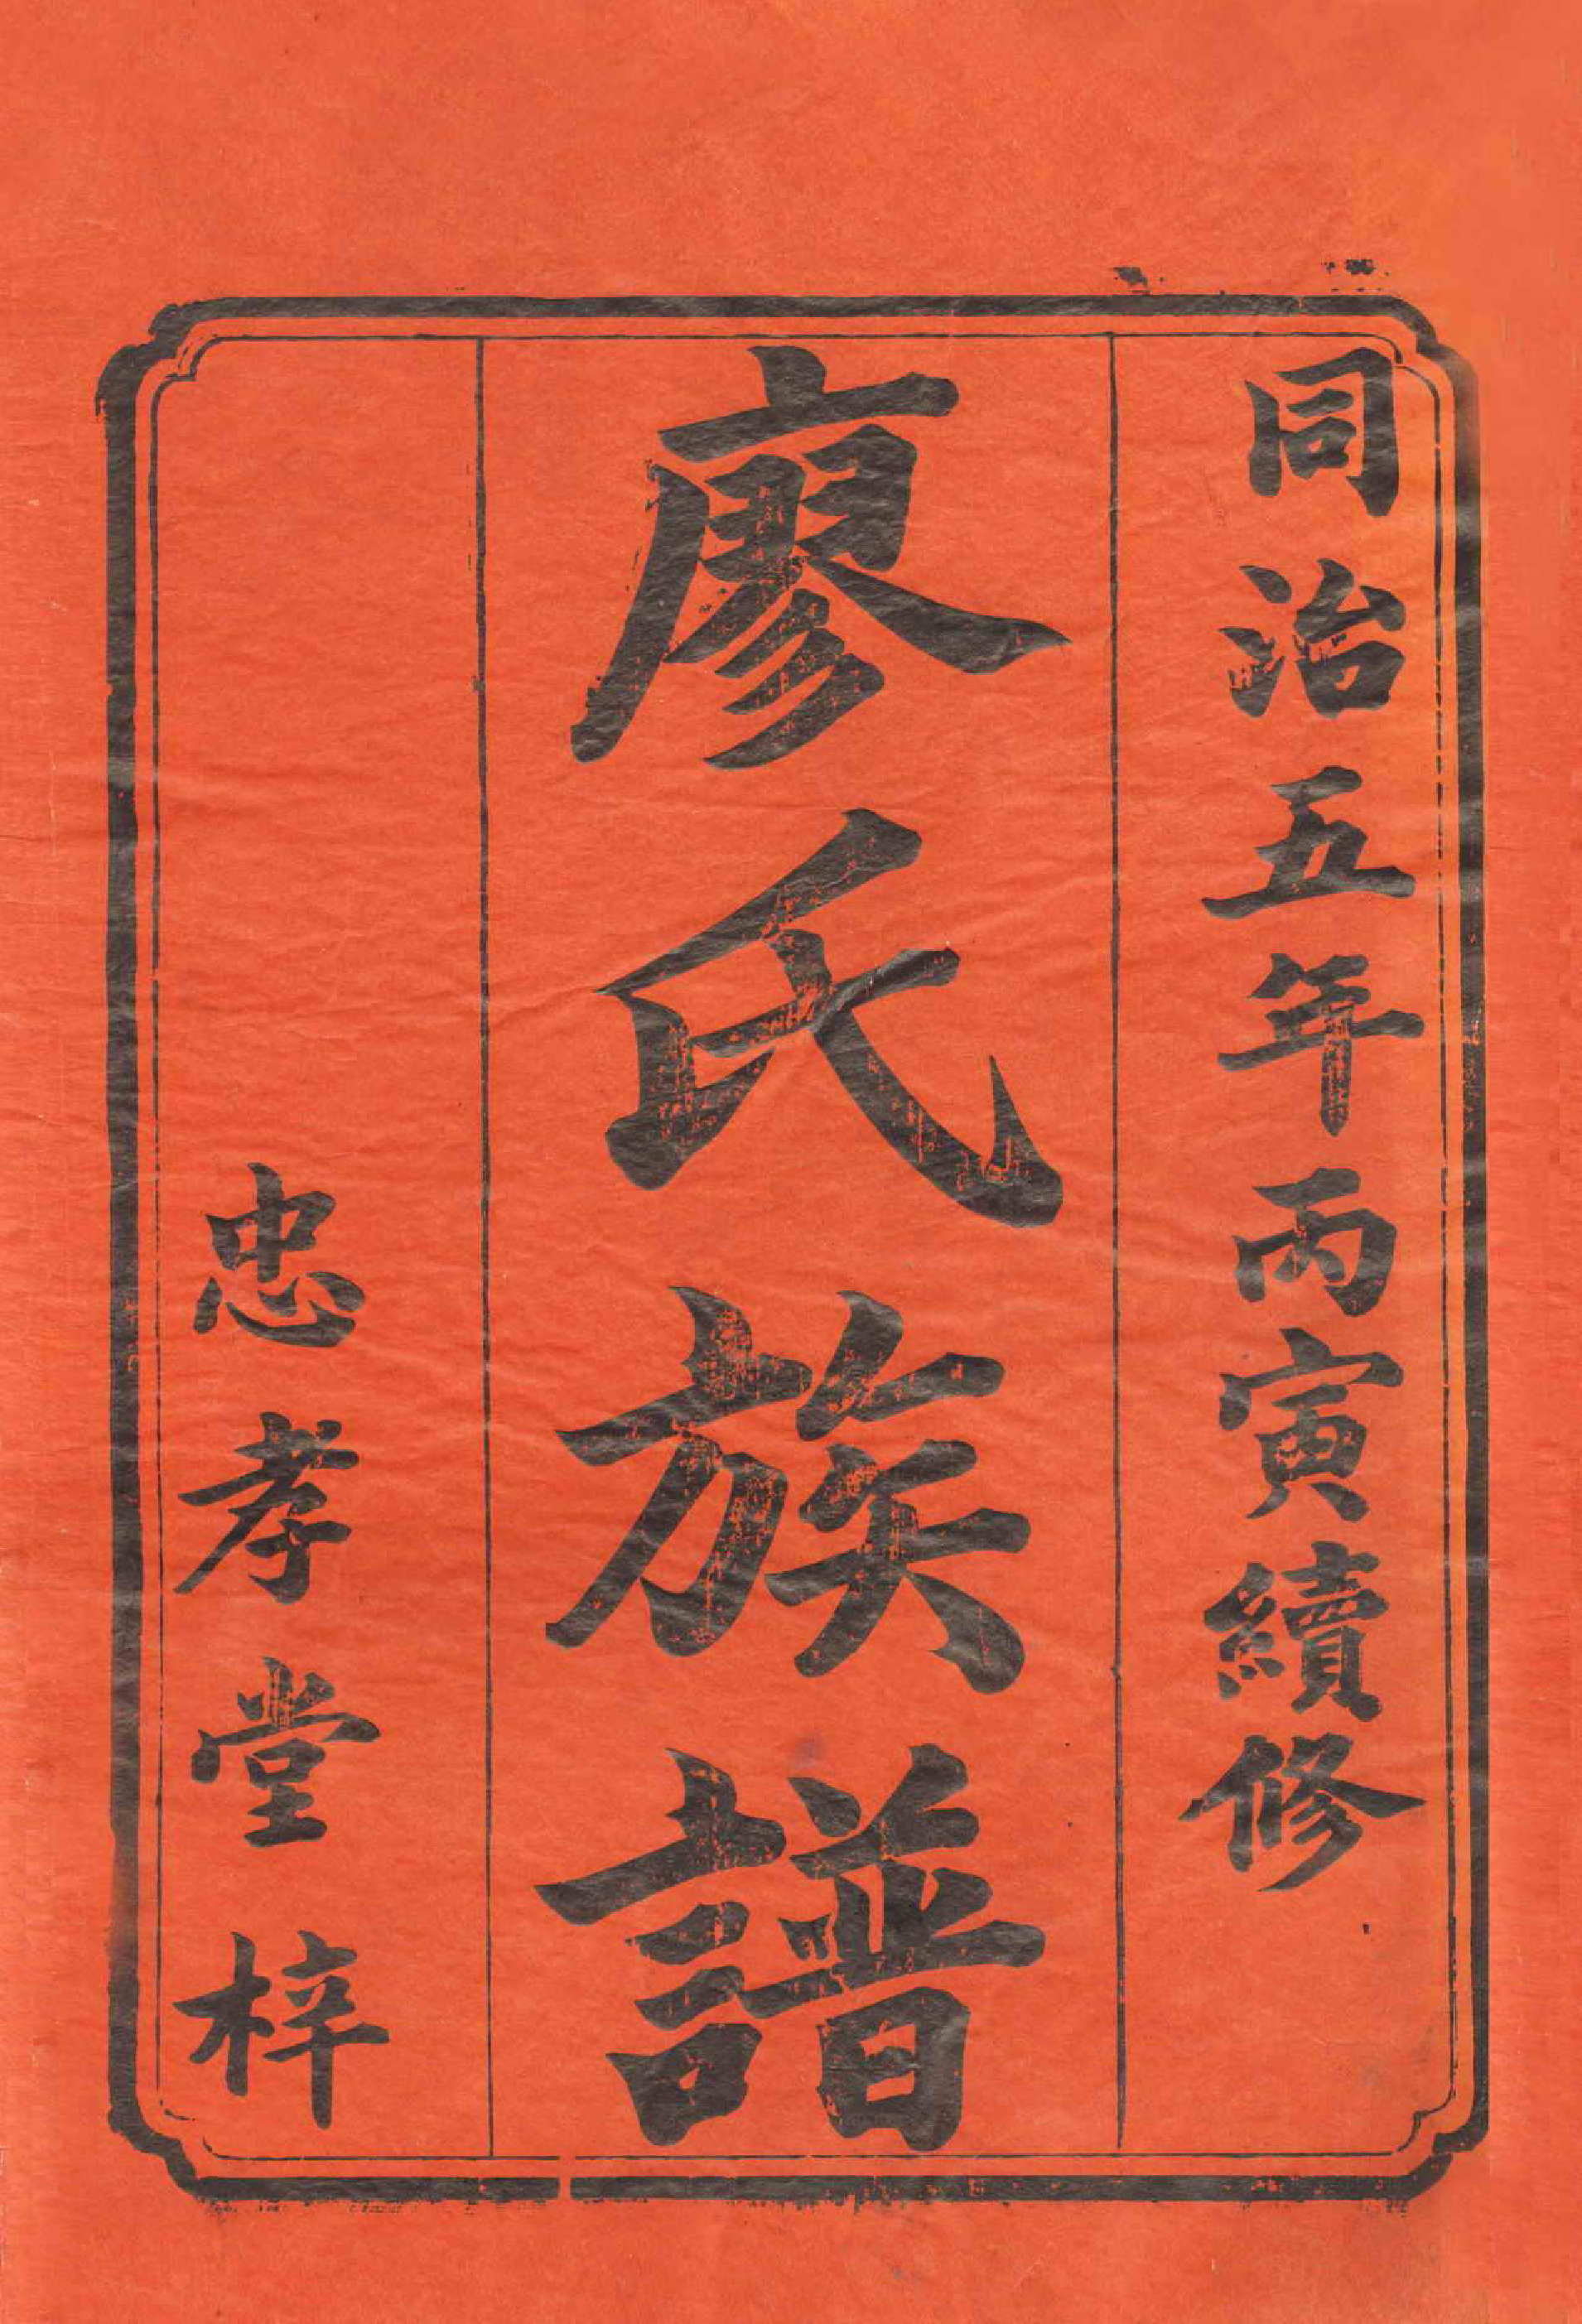 同治五年丙寅續修
廖氏族譜
忠孝堂梓